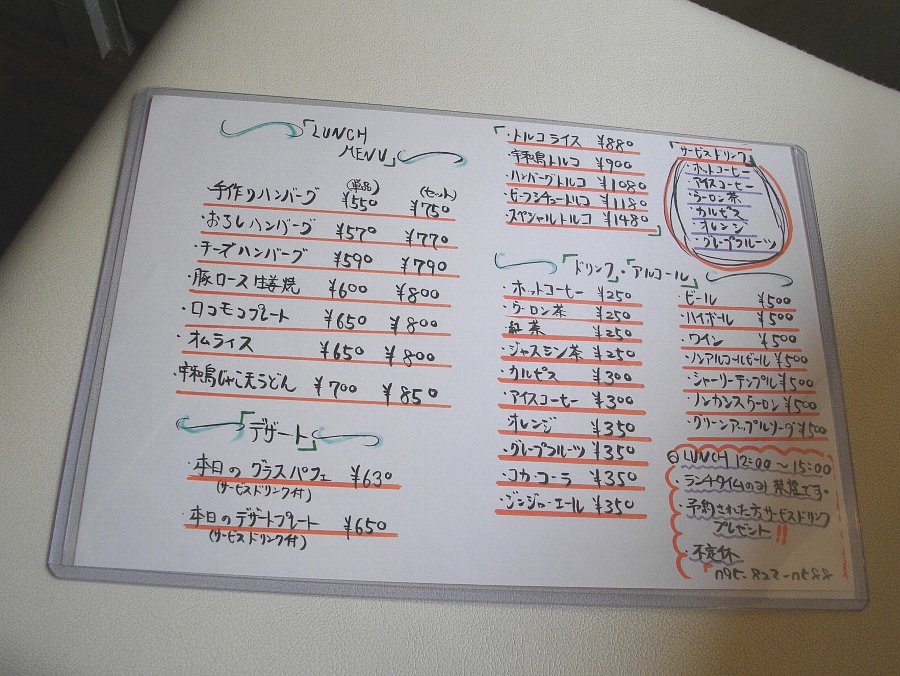 「LUNCH
MENU」
(単品) (セット)
・手作りハンバーグ ¥550 ¥750
・おろしハンバーグ ¥570 ¥770
・チーズハンバーグ ¥590 ¥790
・豚ロース生姜焼 ¥600 ¥800
・ロコモコプレート ¥650 ¥800
・オムライス ¥650 ¥800
・宇和島じゃこ天うどん ¥700 ¥850
「デザート」
・本日のグラスパフェ ¥630
(サービスドリンク付)
・本日のデザートプレート ¥650
(サービスドリンク付)
・トルコライス ¥880
・宇和島トルコ ¥900
・ハンバーグトルコ ¥1080
・ビーフシチュートルコ ¥1180
・スペシャルトルコ ¥1480
「サービスドリンク」
・ホットコーヒー
・アイスコーヒー
・ウーロン茶
・カルピス
・オレンジ
・グレープフルーツ
「ドリンク・アルコール」
・ホットコーヒー ¥250
・ウーロン茶 ¥250
・紅茶 ¥250
・ジャスミン茶 ¥250
・カルピス ¥300
・アイスコーヒー ¥300
・オレンジ ¥350
・グレープフルーツ ¥350
・コカ・コーラ ¥350
・ジンジャーエール ¥350
・ビール ¥500
・ハイボール ¥500
・ワイン ¥500
・ノンアルコールビール ¥500
・シャーリーテンプル ¥500
・ノンカシスウーロン ¥500
・グリーンアップルソーダ ¥500
◎LUNCH 12:00～15:00
・ランチタイムのみ禁煙です。
・予約された方サービスドリンク
プレゼント!!
・不定休
095-822-0588